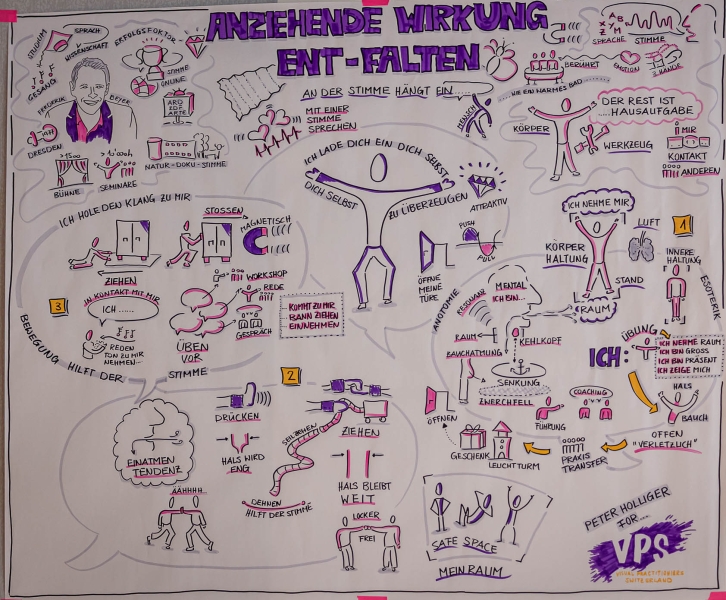 ANZIEHENDE WIRKUNG
ENT-FALTEN
STUDIUM
SPRACH
WISSENSCHAFT
ERFOLGSFAKTOR
STIMME
ONLINE
GESANG
FREDERIK
BEYER
ARD
ZDF
ARTE
DRESDEN
>1500
BÜHNE
>1'000h
SEMINARE
NATUR-DOKU-STIMME
AN DER STIMME HÄNGT EIN........
MENSCH
MIT EINER
STIMME
SPRECHEN
SPRACHE
STIMME
BERÜHRT
EMOTION
WIE EIN WARMES BAD
DER REST IST
....HAUSAUFGABE
KÖRPER
WERKZEUG
MIR
KONTAKT
ANDEREN
ICH LADE DICH EIN DICH SELBST
DICH SELBST
ZU ÜBERZEUGEN
ATTRAKTIV
PUSH
PULL
ÖFFNE
MEINE
TÜRE
ICH HOLE DEN KLANG ZU MIR
STOSSEN
MAGNETISCH
ZIEHEN
IN KONTAKT MIT MIR
ICH ......
3
REDEN
TON ZU MIR
NEHMEN...
WORKSHOP
REDE
GESPRÄCH
ÜBEN
VOR
KOMMT ZU MIR
DANN ZIEHEN
EINNEHMEN
BEWEGUNG HILFT DER
STIMME
1
ICH NEHME MIR
LUFT
KÖRPER
HALTUNG
STAND
RAUM
INNERE
HALTUNG
ESOTERIK
ANATOMIE
RESONANZ
MENTAL
ICH BIN...
RAUM
KEHLKOPF
BAUCHATMUNG
SENKUNG
ZWERCHFELL
ÜBUNG
ICH:
ICH NEHME RAUM
ICH BIN GROSS
ICH BIN PRÄSENT
ICH ZEIGE MICH
HALS
BAUCH
OFFEN
"VERLETZLICH"
ÖFFNEN
FÜHRUNG
COACHING
GESCHENK
LEUCHTTURM
PRAXIS
TRANSFER
2
EINATMEN
TENDENZ
DRÜCKEN
HALS WIRD
ENG
SEILZIEHEN
ZIEHEN
HALS BLEIBT
WEIT
DEHNEN
HILFT DER STIMME
ÄÄHHHH
LOCKER
FREI
SAFE SPACE
MEIN RAUM
PETER HOLLIGER
FOR...
VPS
VISUAL PRACTITIONERS
SWITZERLAND